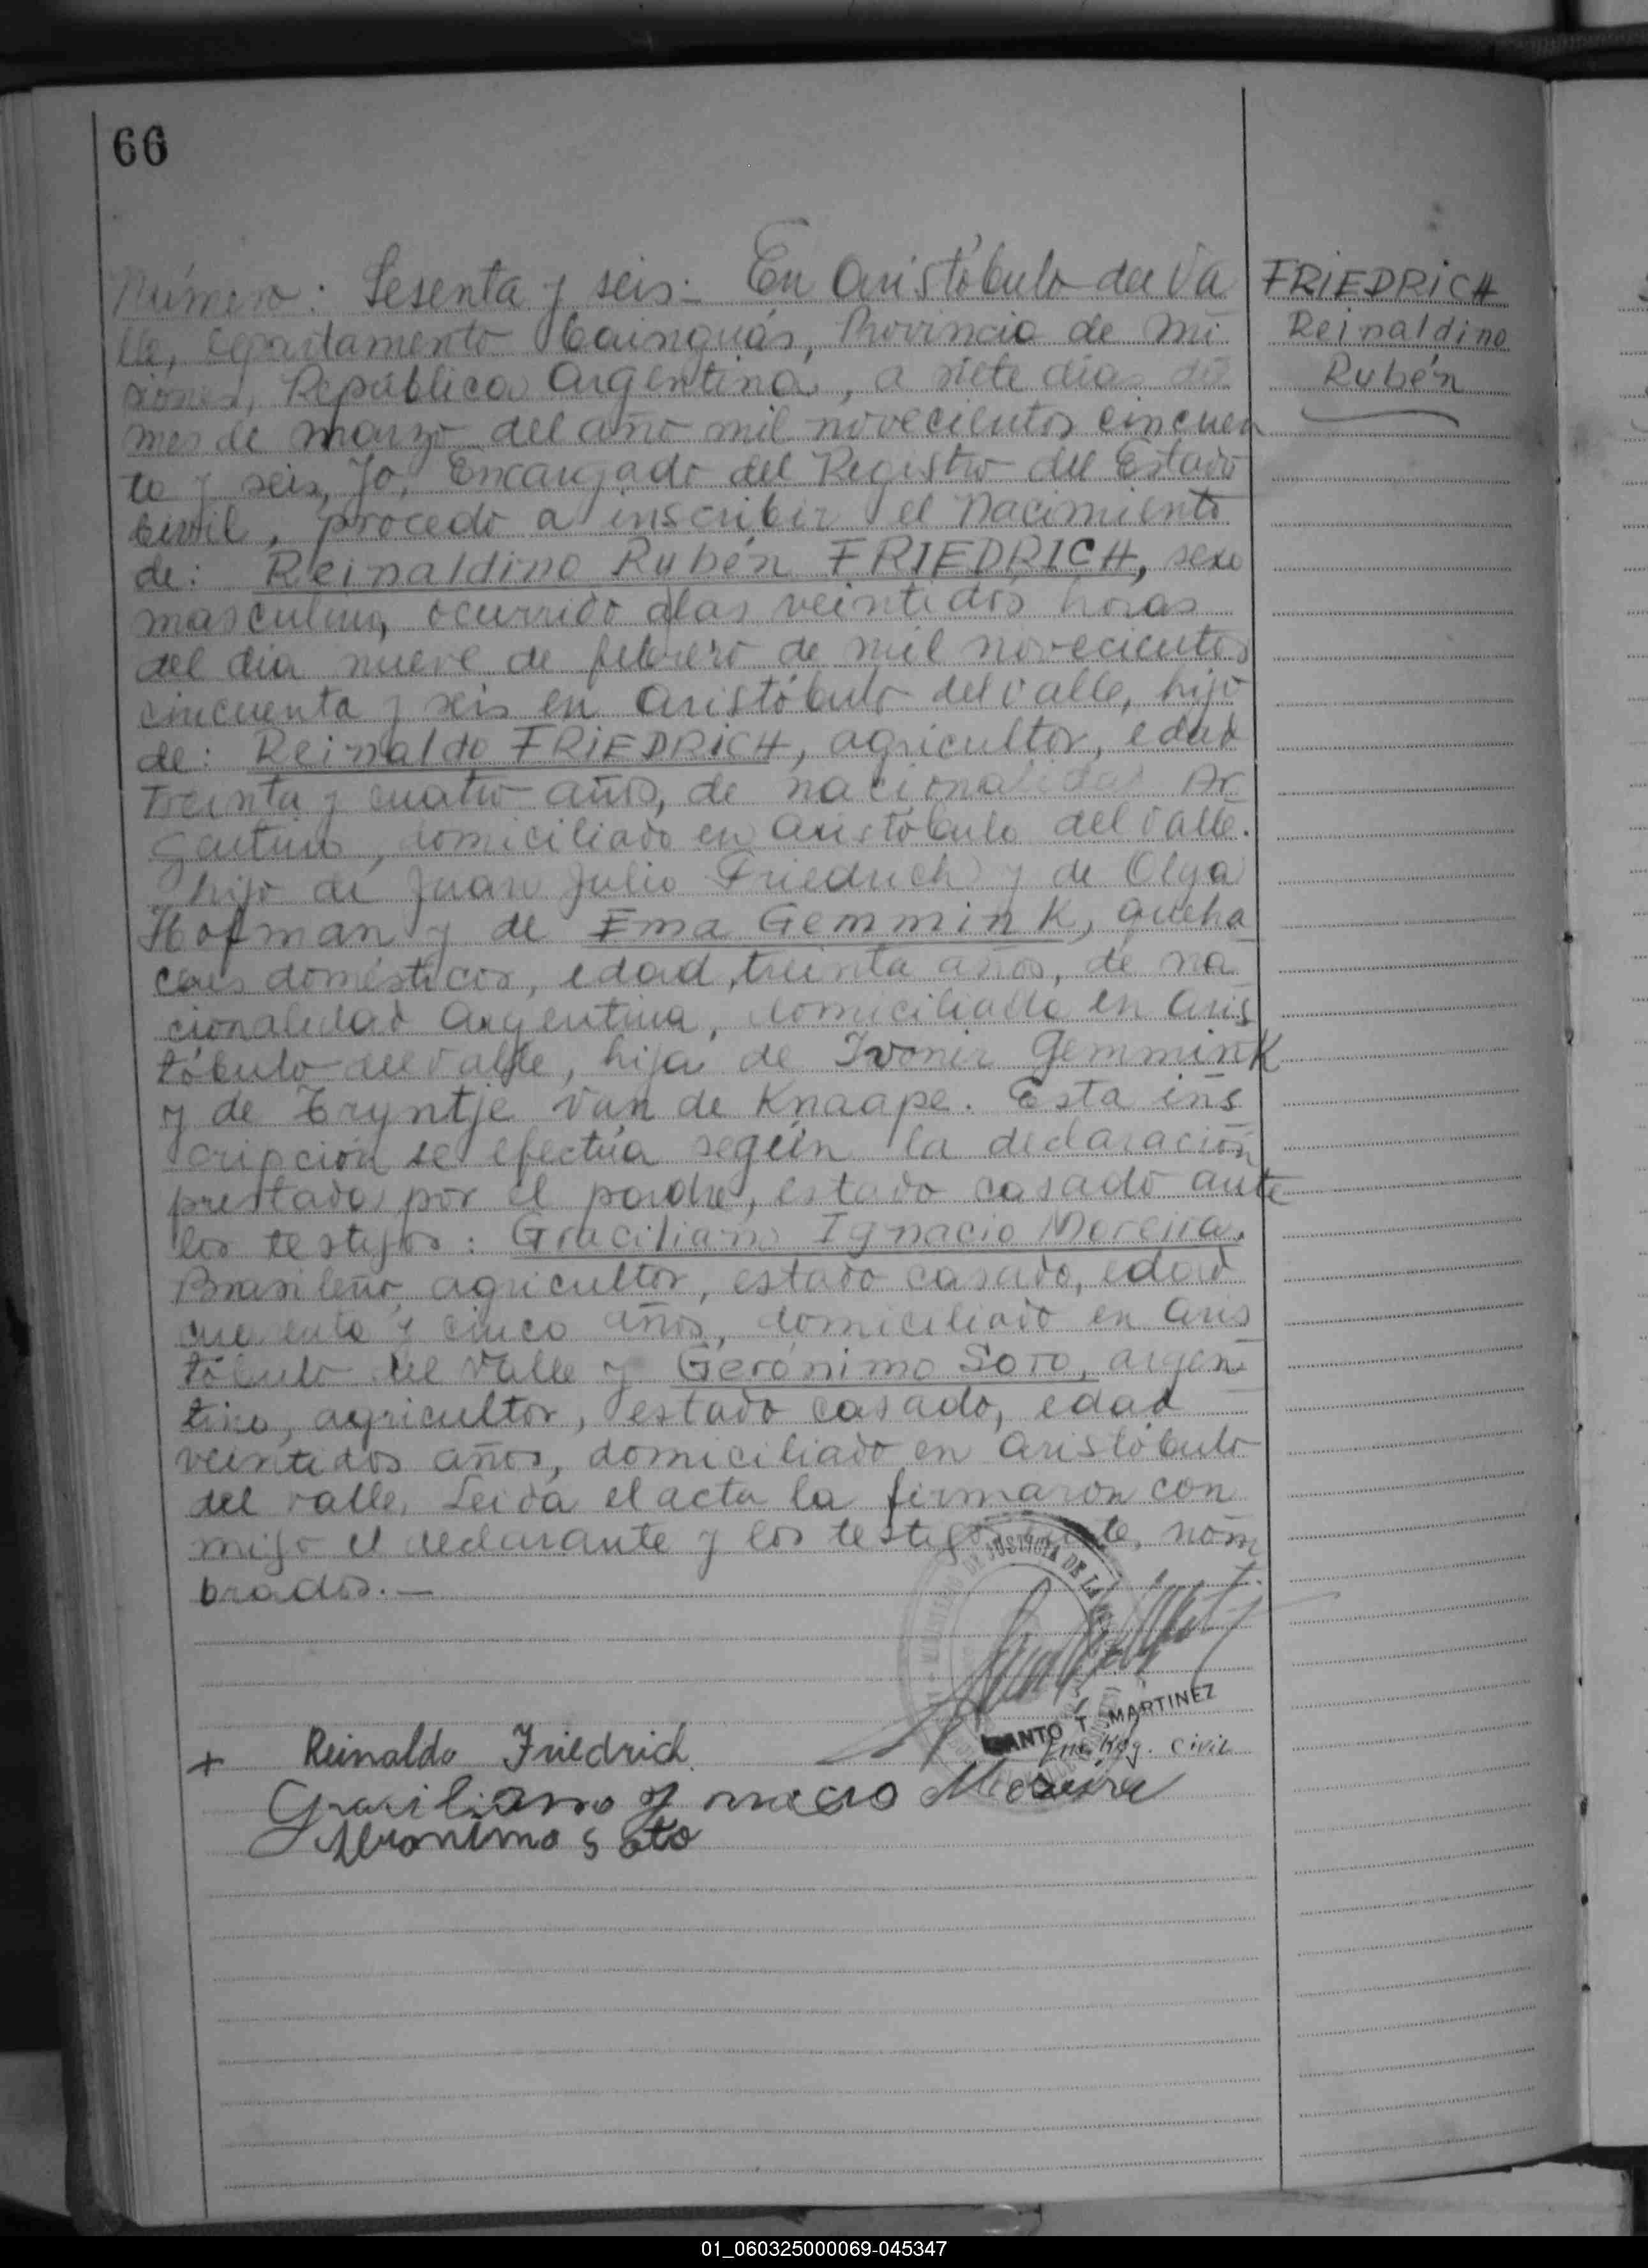 66
Número: Sesenta y seis.- En Aristóbulo del Va
lle, departamento Cainguás, Provincia de Mi
siones, República Argentina, a siete días del
mes de marzo del año mil novecientos cincuen
ta y seis, Yo, Encargado del Registro del Estado
Civil, procedo a inscribir el Nacimiento
de: Reinaldino Rubén FRIEDRICH, sexo
masculino, ocurrido a las veintidós horas
del día nueve de febrero de mil novecientos
cincuenta y seis en Aristóbulo del Valle, hijo
de: Reinaldo FRIEDRICH, agricultor, edad
treinta y cuatro años, de nacionalidad Ar
gentino, domiciliado en Aristóbulo del Valle.
hijo de Juan Julio Friedrich y de Olga
Hofman y de Ema Gemmink, queha
ceres domésticos, edad treinta años, de na
cionalidad Argentina, domiciliada en Aris
tóbulo del Valle, hija de Ivonir Gemmink
y de Tryntje Van de Knaape. Esta ins
cripción se efectúa según la declaración
prestada por el padre, estado casado ante
los testigos: Graciliano Ignacio Moreira,
Brasileño, agricultor, estado casado, edad
y cinco años, domiciliado en Aris
tóbulo del Valle y Gerónimo Soto, argen
tino, agricultor, estado casado, edad
veintidos años, domiciliado en Aristóbulo
del Valle. Leida el acta la firmaron con
migo el declarante y los testigos ante, nom
brados.—
JUSTICIA DE LA
SANTO T. MARTINEZ
Enc. Reg. Civil
+ Reinaldo Friedrich
Graciliano Y nacio Moreira
Jeronimo Soto
FRIEDRICH
Reinaldino
Rubén
01_060325000069-045347